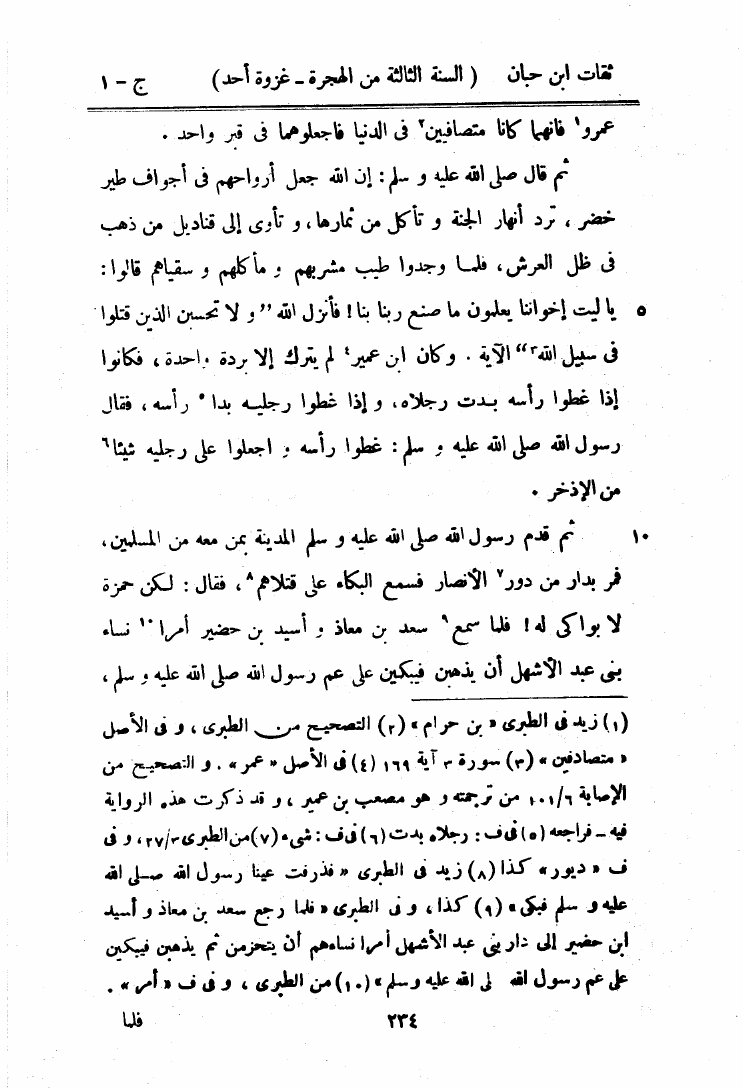 ثقات ابن حبان ( السنة الثالثة من الهجرة ـ غزوة أحد ) ج - ١
عمرو١ فانهما كانا متصافيين٢ فى الدنيا فاجعلوهما فى قبر واحد .
ثم قال صلى الله عليه و سلم : إن الله جعل أرواحهم فى أجواف طير
خضر ، ترد أنهار الجنة و تأكل من ثمارها ، و تأوى إلى قناديل من ذهب
فى ظل العرش ، فلما وجدوا طيب مشربهم و مأكلهم و سقياهم قالوا :
٥ يا ليت إخواننا يعلمون ما صنع ربنا بنا ! فأنزل الله ” و لا تحسبن الذين قتلوا
فى سبيل الله٣“ الآية . وكان ابن عمير٤ لم يترك إلا بردة واحدة ، فكانوا
إذا غطوا رأسه بدت رجلاه ، و إذا غطوا رجليه بدا٥ رأسه ، فقال
رسول الله صلى الله عليه و سلم : غطوا رأسه و اجعلوا على رجليه شيئا٦
من الإذخر .
١٠ ثم قدم رسول الله صلى الله عليه و سلم المدينة بمن معه من المسلمين ،
فمر بدار من دور٧ الأنصار فسمع البكاء على قتلاهم٨ ، فقال : لكن حمزة
لا بواكى له ! فلما سمع٩ سعد بن معاذ و أسيد بن حضير أمرا١٠ نساء
بنى عبد الأشهل أن يذهبن فيبكين على عم رسول الله صلى الله عليه و سلم ،
(١) زيد فى الطبرى « بن حرام » (٢) التصحيح من الطبرى ، و فى الأصل
« متصادفين » (٣) سورة ٣ آية ١٦٩ (٤) فى الأصل « عمر » . و التصحيح من
الإصابة ١٠١/٦ من ترجمته و هو مصعب بن عمير ، و قد ذكرت هذه الرواية
فيه ـ فراجعه (٥) فى ف : رجلاه بدت (٦) فى ف : شىء (٧) من الطبرى ٢٧/٣ ، و فى
ف « ديور » كذا (٨) زيد فى الطبرى « فذرفت عينا رسول الله صلى الله
عليه و سلم فبكى » (٩) كذا ، و فى الطبرى « فلما رجع سعد بن معاذ و أسيد
ابن حضير إلى دار بنى عبد الأشهل أمرا نساءهم أن يتحزمن ثم يذهبن فيبكين
على عم رسول الله لى الله عليه وسلم » (١٠) من الطبرى ، و فى ف « أمر » .
٢٣٤ فلما